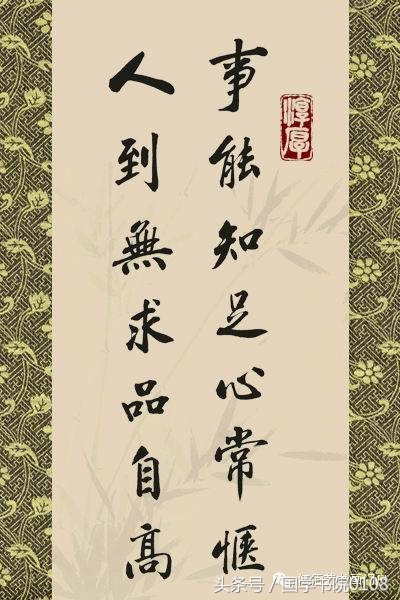 淳厚
事能知足心常愜
人到無求品自高
头条号 / 国学书院0108